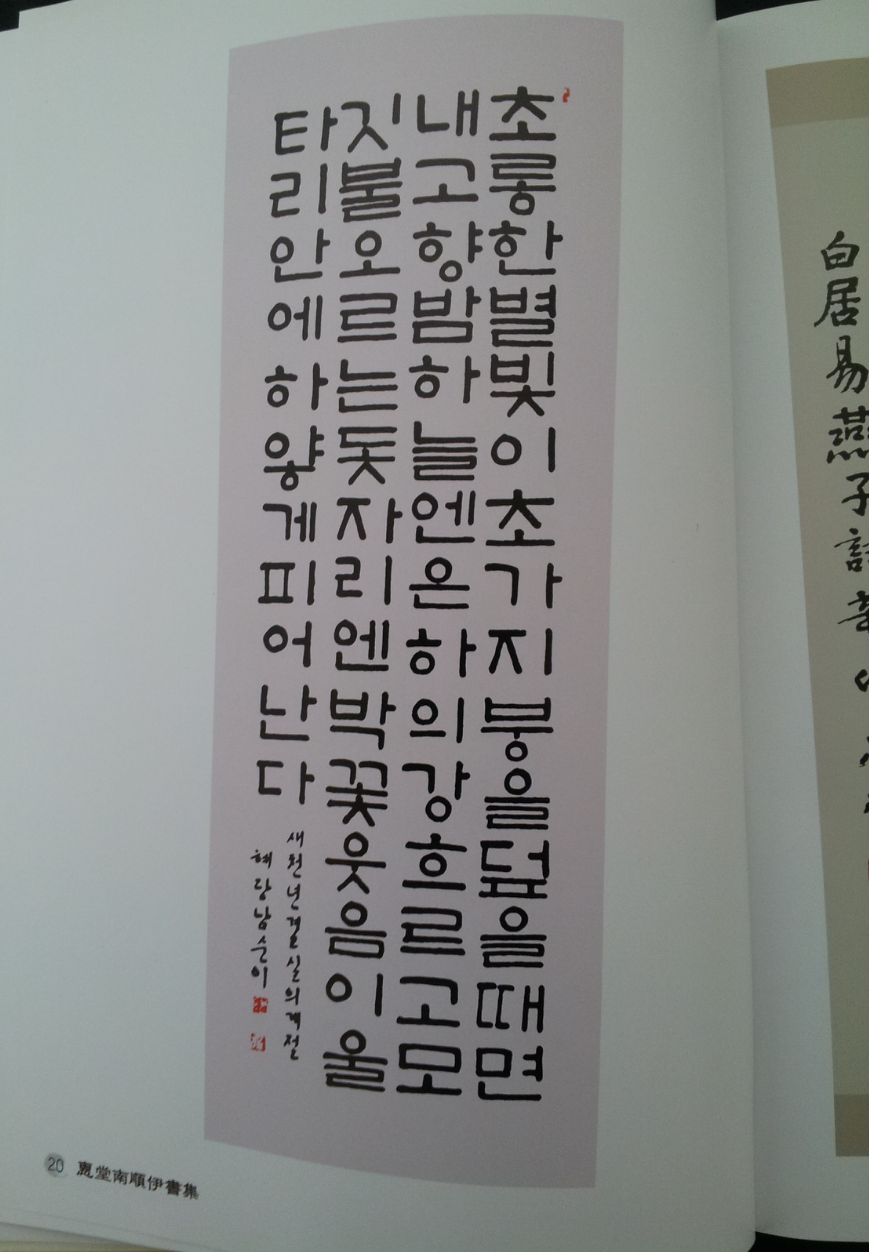 초롱한별빛이초가지붕을덮을때면
내고향밤하늘엔은하의강흐르고모
깃불오르는돗자리엔박꽃웃음이울
타리안에하얗게피어난다
새천년결실의계절
혜당남순이
20 惠堂南順伊書集
白居易燕子詩